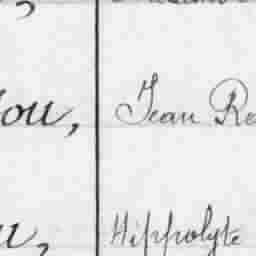 ou, Jean Re
Hippolyte